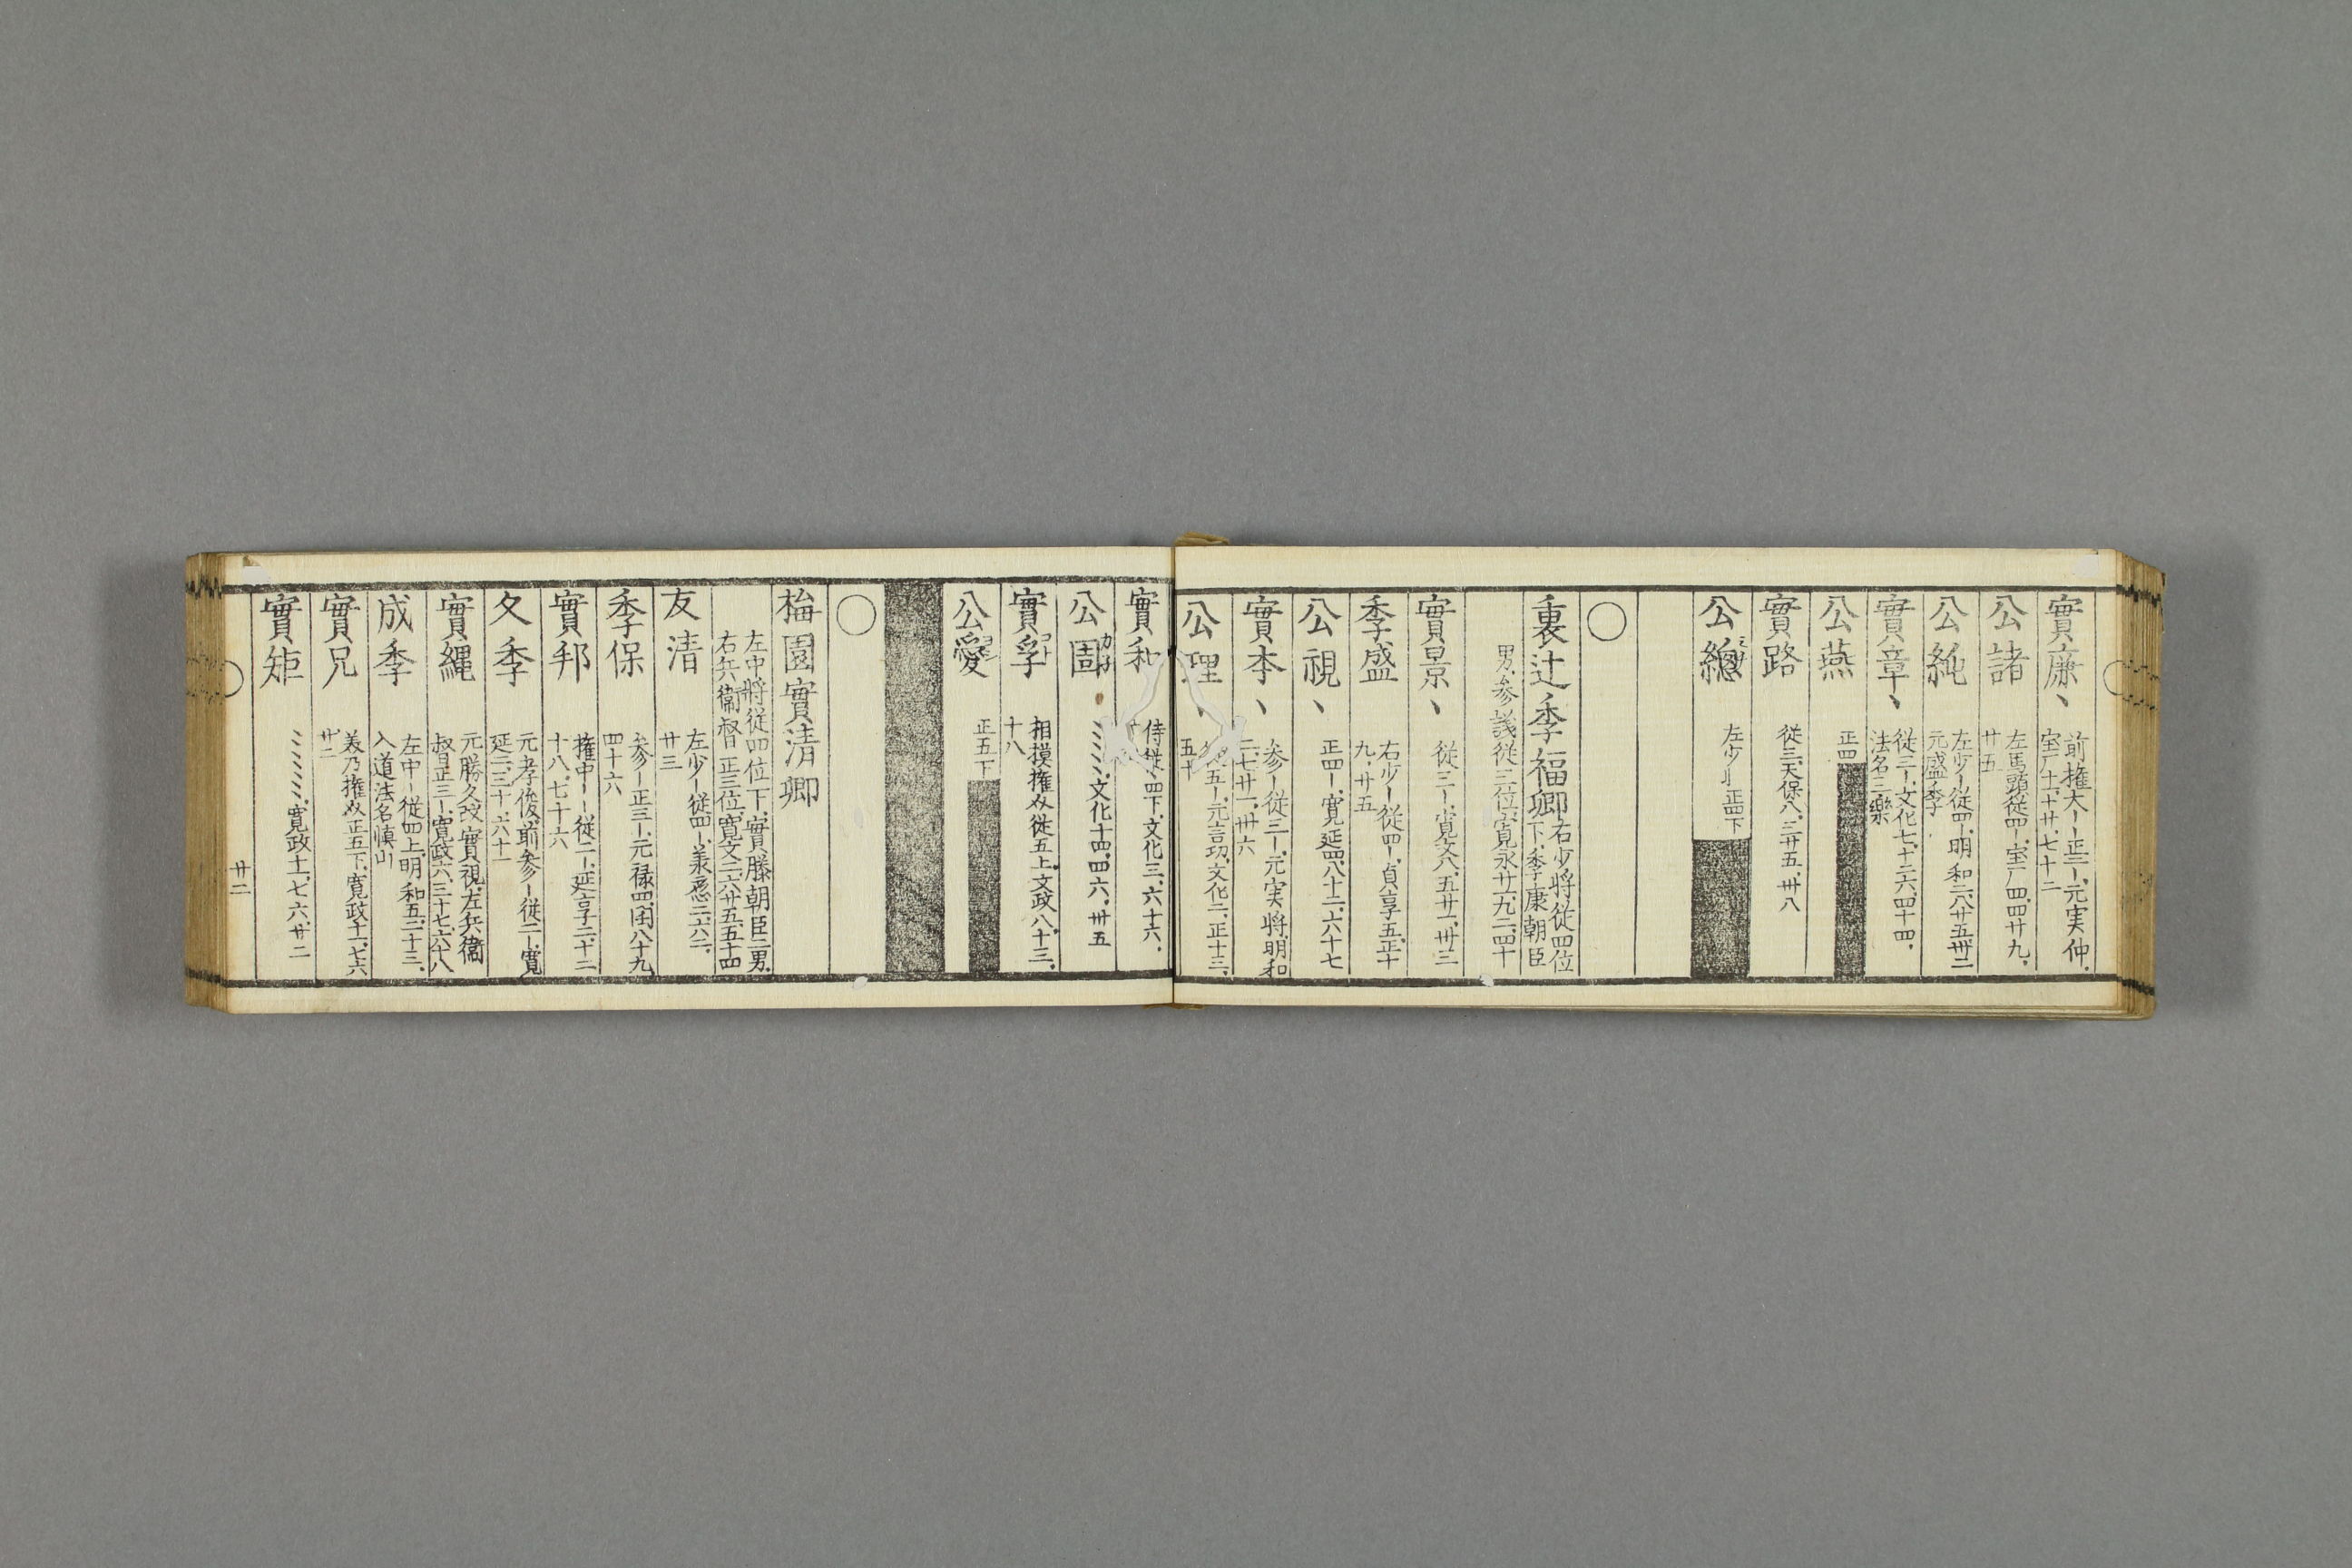 實廉、
前権大ー正二ー、元実仲、
宝厂十、十廿、七十二
公諸
左馬頭従四ー、宝厂四、四廿九、
廿五
公純
左少ー従四ー、明和二、六廿五、卅二
元盛季
實章、
従三ー、文化七、十二六、四十四、
法名三樂
公燕
正四
實路
従三、天保八、三廿五、卅八
公總
左少ー正四下
〇
裏辻季福卿
右少將従四位
下季康朝臣
男、参議従三位、寛永廿一、九二、四十
實景、
従三ー、寛文八、五廿一、卅三
季盛
右少ー従四ー、貞享五、正十
九、廿五
公視、
正四ー、寛延四、八十二、六十七
實本、
参ー従三ー、元実將、明和
二、七廿一、卅六
公理、
五ー、元言功、文化二、正十三、
五十
實和
侍従、四下、文化三、六十六、
公圄
ミミミ、文化十四、四六、卅五
實孚
相摸權介従五上、文政八、十三、
十八
公愛
正五下
〇
梅園實清卿
左中將従四位下實勝朝臣二男、
右兵衛督正三位、寛文二、六廿五、五十四
友清
左少ー従四ー、義應二、六二、
廿三
季保
参ー正三ー、元禄四、閏八十九
四十六
實邦
権中ーー従二ー、延享二、十二
十八、七十六
久季
元孝俊、前参ー従二ー、寛
延二、三十、六十一
實縄
元勝久、改實視、左兵衛
督正三ー、寛政六、三十七、六十八
成季
左中ー従四上、明和五、二十三、
入道法名慎山
實兄
美乃権介正五下、寛政十一、七六
廿二
實矩
ミミミミ、寛政十一、七六、廿二
廿二